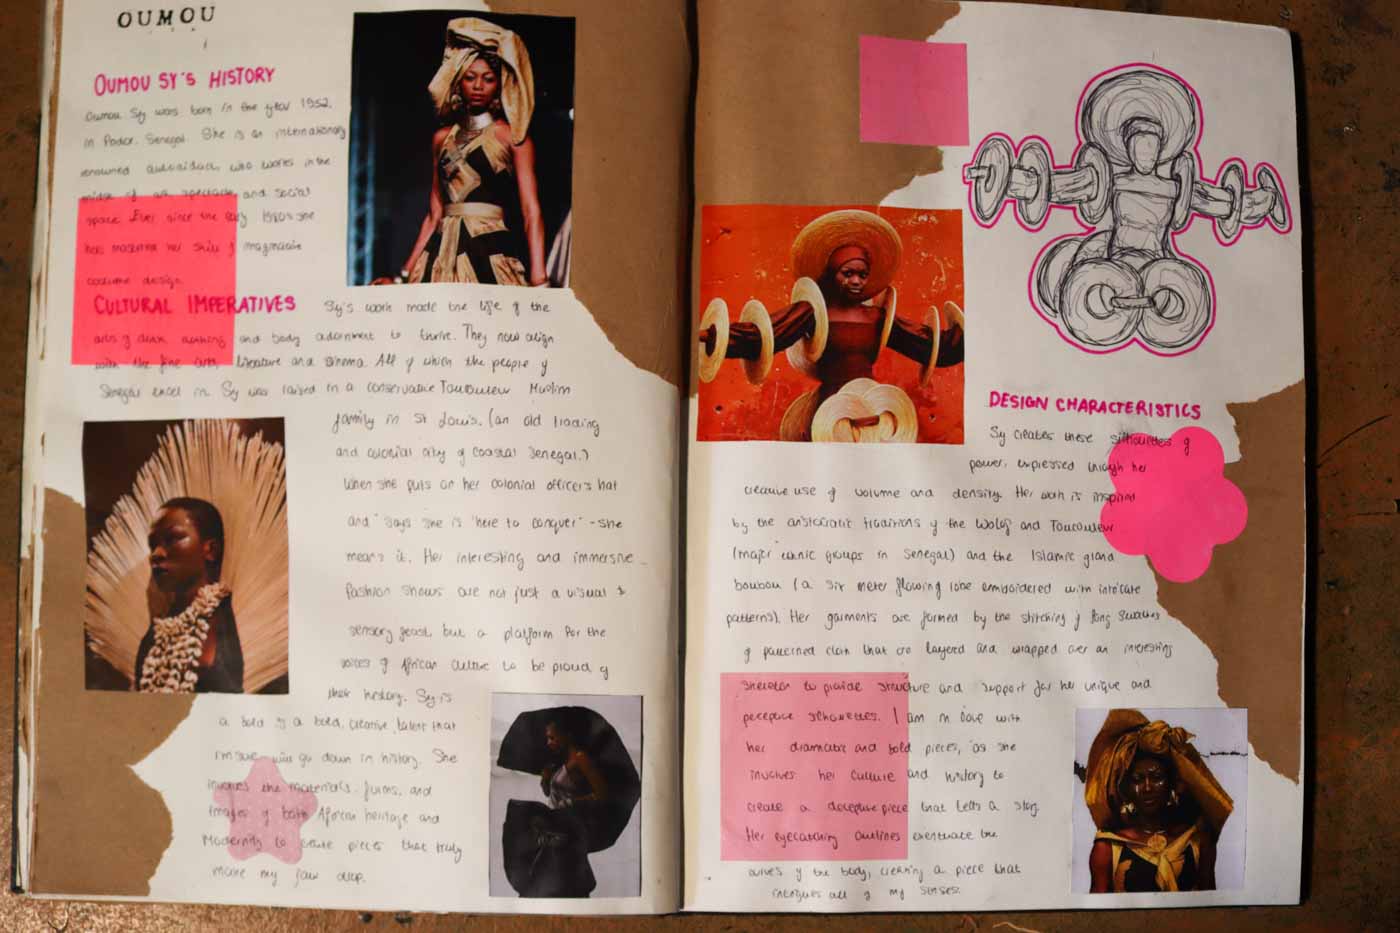 OUMOU
OUMOU SY'S HISTORY
Oumou Sy was born in the year 1952,
in Podor, Senegal. She is an internationally
renowned autodidact, who works in the
midst of art spectacle and social
space. Ever since the early 1980s she
has mastered her skill of imaginative
costume design.
CULTURAL IMPERATIVES
Sy's work made the life of the
arts of and body adornment to thrive. They now align
with the fine arts, literature and cinema. All of which the people of
Senegal excel in. Sy was raised in a conservative Toucouleur Muslim
family in St Louis. (an old trading
and colonial city of coastal Senegal.)
When she puts on her colonial officers hat
and "says she is 'here to conquer' - she
means it. Her interesting and immersive
fashion shows are not just a visual &
sensory feast, but a platform for the
voices of African culture to be proud of
their history. Sy is
a bold is a bold, creative, talent that
I'm sure will go down in history. She
involves the materials, forms, and
images of both African heritage and
Modernity to create pieces that truly
make my jaw drop.
DESIGN CHARACTERISTICS
Sy creates these silhouettes of
power, expressed through her
creative use of volume and density. Her work is inspired
by the aristocratic traditions of the Wolof and Toucouleur
(major ethnic groups in Senegal) and the Islamic grand
boubou (a six meter flowing robe embroidered with intricate
patterns). Her garments are formed by the stitching of long swatches
of patterned cloth that are layered and wrapped over an interesting
skeleton to provide structure and support for her unique and
deceptive silhouettes. I am in love with
her dramatic and bold pieces, as she
involves her culture and history to
create a deceptive piece that tells a story.
Her eyecatching outlines the
curves of the body, creating a piece that
intrigues all of my senses.